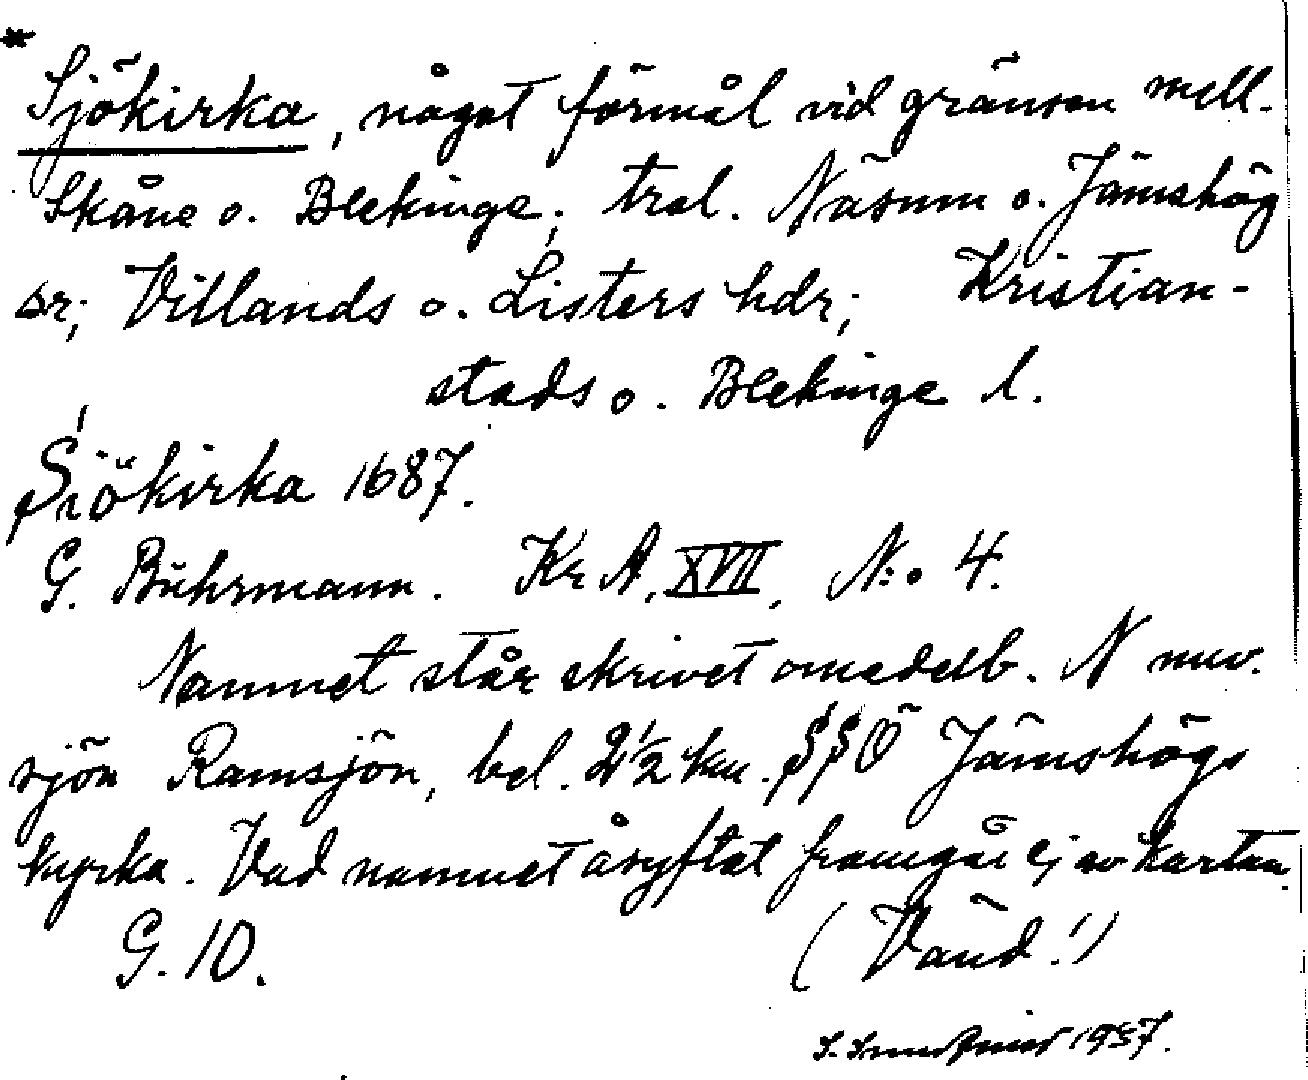 *
Sjökirka, något förmål vid gränsen mell.
Skåne o. Blekinge; trol. Näsum o. Jämshög
sr; Villands o. Listers hdr; Kristian-
stads o. Blekinge l.
Siökirka 1687.
G. Buhrmann. Kr A, XVII, N:o 4.
Namnet står skrivet omedelb. N nuv.
sjön Ramsjön, bel. 2 1/2 km. SSÖ Jämshögs
kyrka. Vad namnet åsyftat framgår ej av kartan.
G. 10. (Vänd!)
1957.